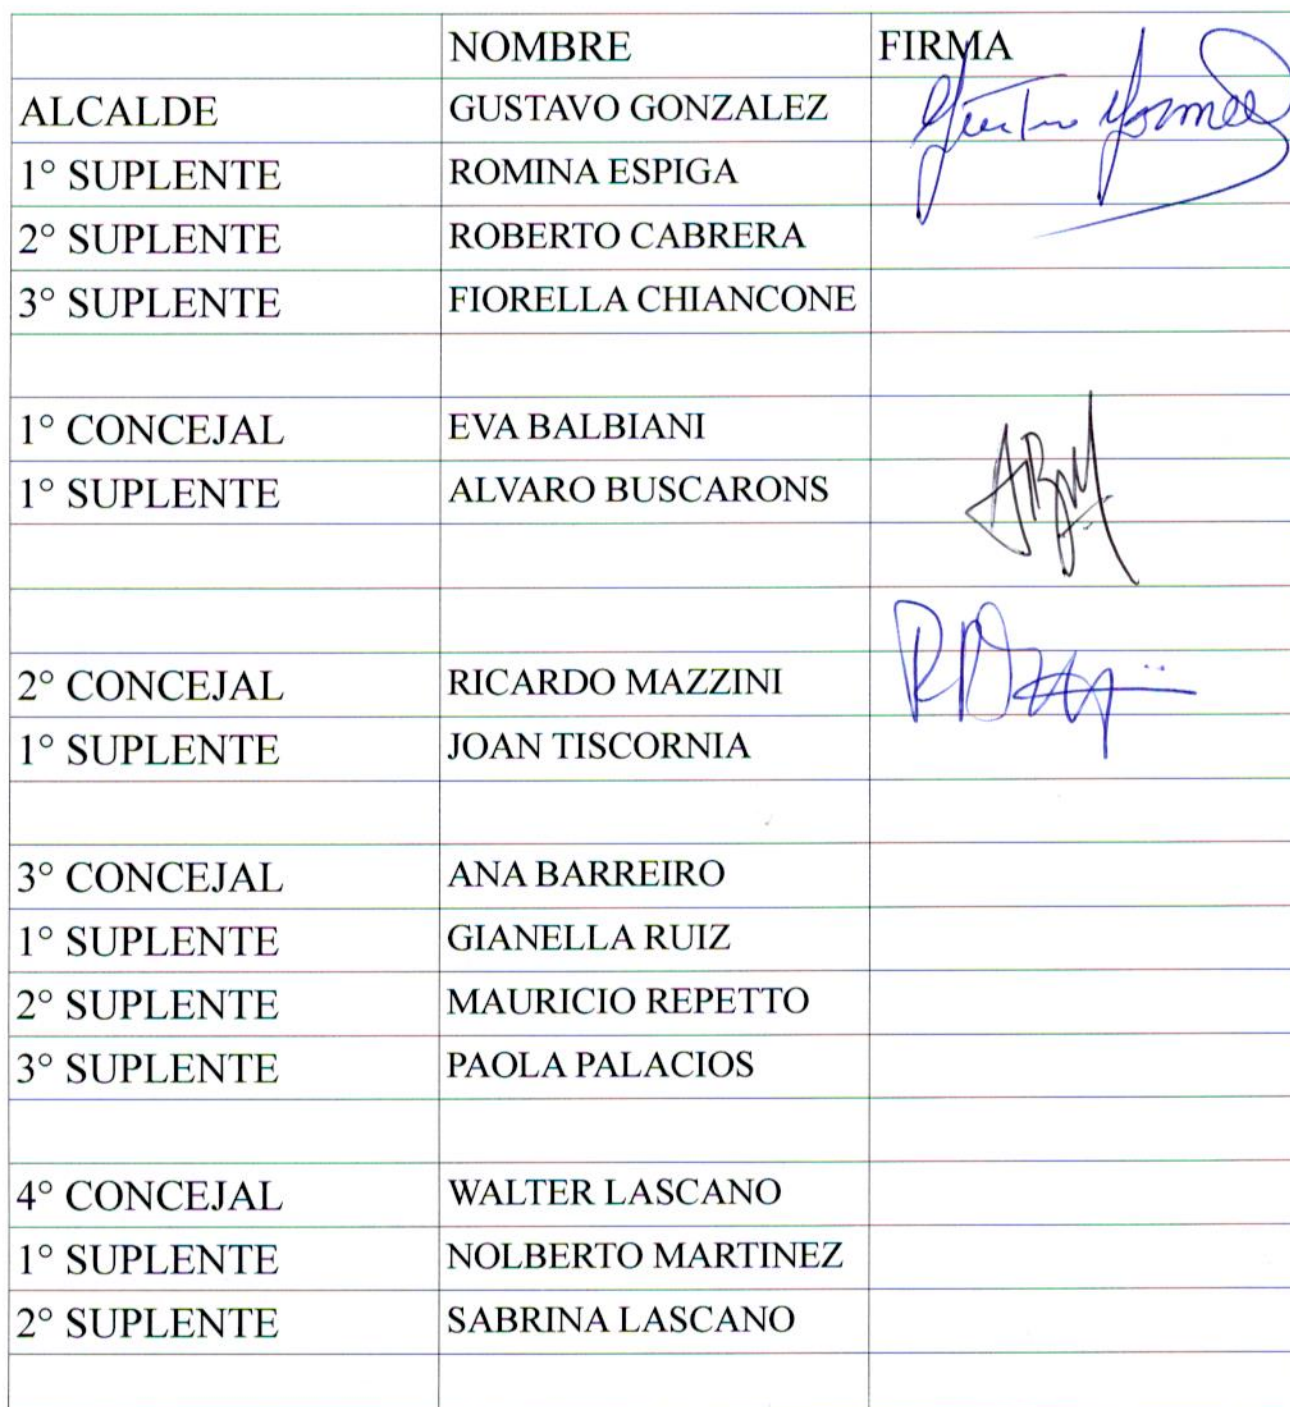 NOMBRE FIRMA
ALCALDE GUSTAVO GONZALEZ Gustavo Gonzalez
1° SUPLENTE ROMINA ESPIGA
2° SUPLENTE ROBERTO CABRERA
3° SUPLENTE FIORELLA CHIANCONE
1° CONCEJAL EVA BALBIANI
1° SUPLENTE ALVARO BUSCARONS
2° CONCEJAL RICARDO MAZZINI
1° SUPLENTE JOAN TISCORNIA
3° CONCEJAL ANA BARREIRO
1° SUPLENTE GIANELLA RUIZ
2° SUPLENTE MAURICIO REPETTO
3° SUPLENTE PAOLA PALACIOS
4° CONCEJAL WALTER LASCANO
1° SUPLENTE NOLBERTO MARTINEZ
2° SUPLENTE SABRINA LASCANO